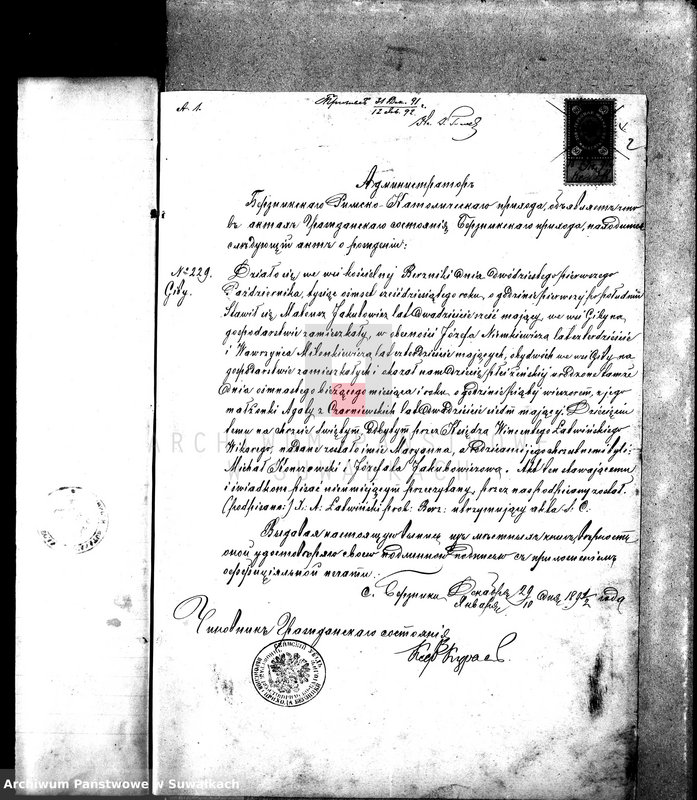 А. 1.
31 Дек. 91
12 Янв. 92 г.
2
Администраторъ
Берзникскаго Римско-Католическаго прихода, объявляетъ что
въ актахъ Гражданскаго состоянія Берзникскаго прихода, находится
слѣдующій актъ о рожденіи:
№ 229.
Giby.
Działo się we wsi kościelnej Berzniki dnia dwódziestego pierwszego
Października, tysiąc ośmset sześćdziesiątego roku, o godzinie pierwszej po południu
Stawił się Mateusz Jakubowicz lat dwadzieście sześć mający, we wsi Giby na
gospodarstwie zamieszkały, w obecności Józefa Niemkiewicza lat czterdzieście
i Wawrzyńca Milenkiewicza lat czterdzieście mających, obydwóch we wsi Giby na
gospodarstwie zamieszkałych i okazał nam dziecię płci żeńskiej urodzone tamże
dnia ośmnastego bieżącego miesiąca i roku, o godzinie piątej wieczorem, z jego
małżonki Agaty z Czarniewskich lat dwadzieście siedm mającej. Dziecięciu
temu na chrzcie świętym odbytym przez Księdza Wincentego Łatwińskiego
Wikarego, nadane zostało imie Maryanna, a rodzicami jego chrzestnemi byli:
Michał Konerowski i Józefata Jakubowiczowa. Akt ten stawającemu
i świadkom pisać nieumiejącym przeczytany, przez nas podpisany został.
(podpisano:) X. A. Łatwiński prob: Berz: utrzymujący akta S. C.
Выдавая настоящую выпись изъ метрическихъ книгъ вѣрность
оной удостовѣряю своею подлинною подписью съ приложеніемъ
оффиціяльной печати.
с. Берзники, Декабря 29 / Января 10 дня 1891/2 года
Чиновникъ Гражданскаго состоянія
ARCHIWUM PAŃSTWOWE
W SUWAŁKACH
Archiwum Państwowe w Suwałkach